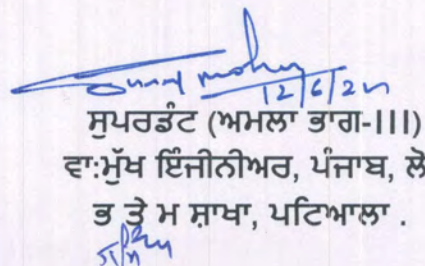 12/6/2
ਸੁਪਰਡੰਟ (ਅਮਲਾ ਭਾਗ-III)
ਵਾ:ਮੁੱਖ ਇੰਜੀਨੀਅਰ, ਪੰਜਾਬ, ਲੋ
ਭ ਤੇ ਮ ਸ਼ਾਖਾ, ਪਟਿਆਲਾ .